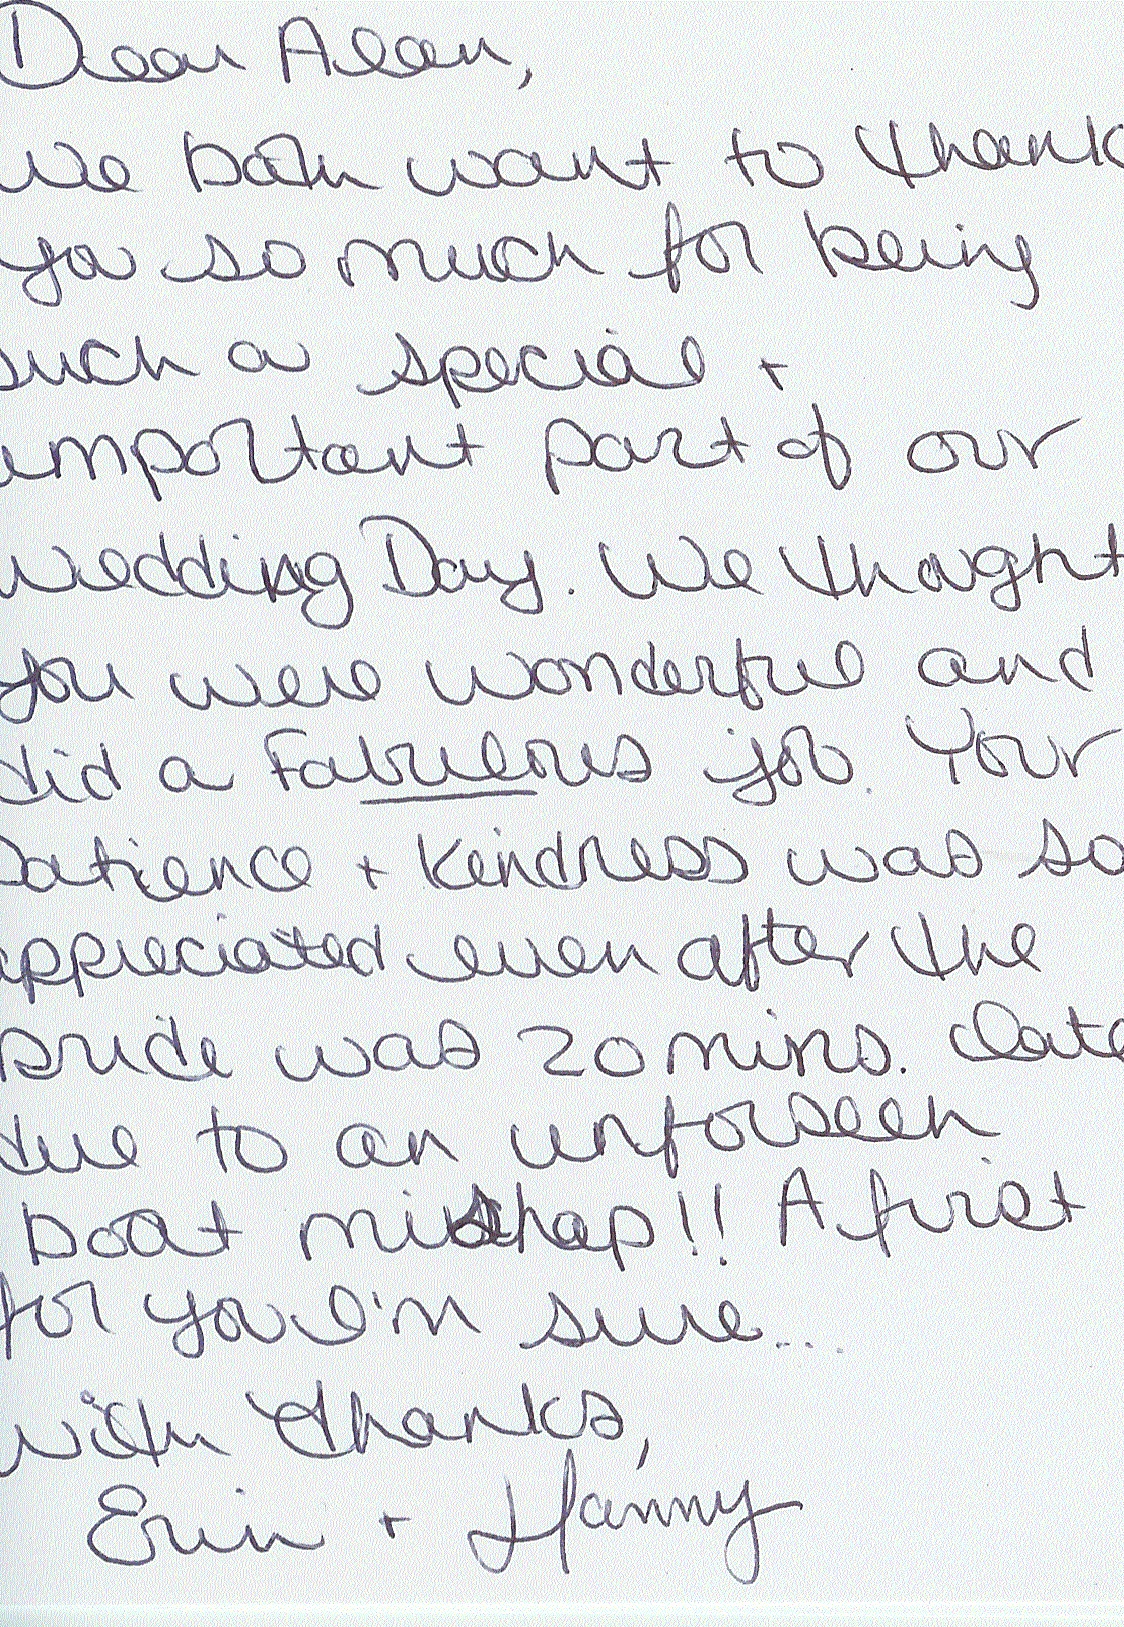 Dear Alan,
We both want to thank
you so much for being
such a special +
important part of our
Wedding Day. We thought
you were wonderful and
did a Fabulous job. Your
Patience + Kindness was so
appreciated even after the
Bride was 20 mins. late
due to an unforseen
boat mishap!! A first
for you I'm sure...
With thanks,
Erin + Hanny